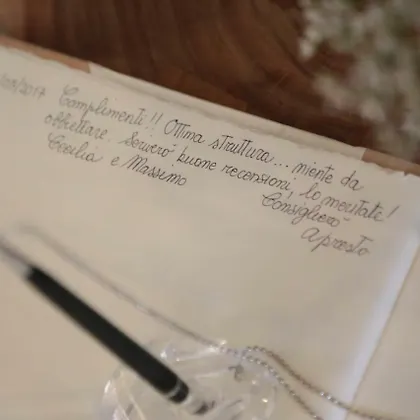 /2017 Complimenti!! Ottima struttura... niente da
obbiettare. Scriverò buone recensioni, lo meritate!
Cecilia e Massimo Consiglierò
A presto